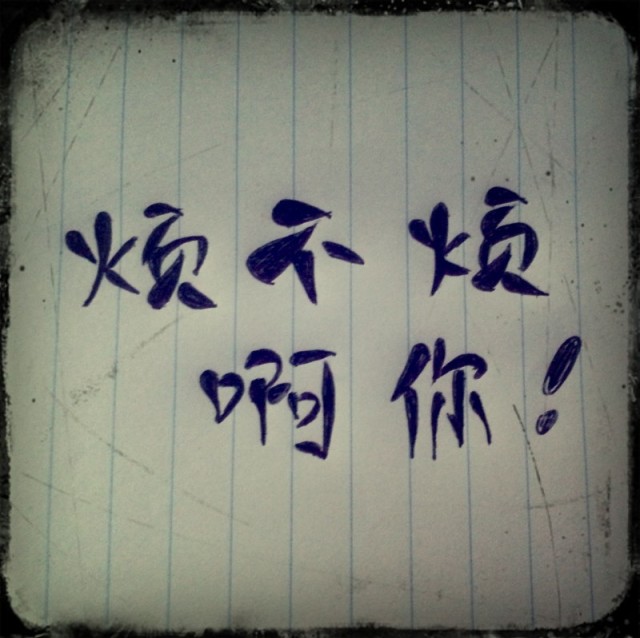 烦不烦
啊你！